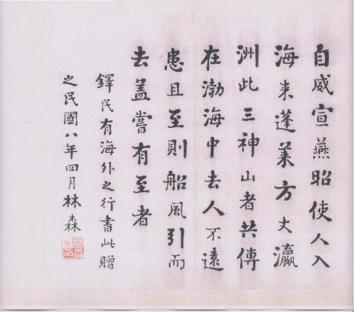 自威宣燕昭使人入
海来蓬莱方丈瀛
洲此三神山者共傳
在渤海中去人不遠
患且至則船風引而
去盖嘗有至者
鐸民有海外之行書此贈
之民國八年四月林森